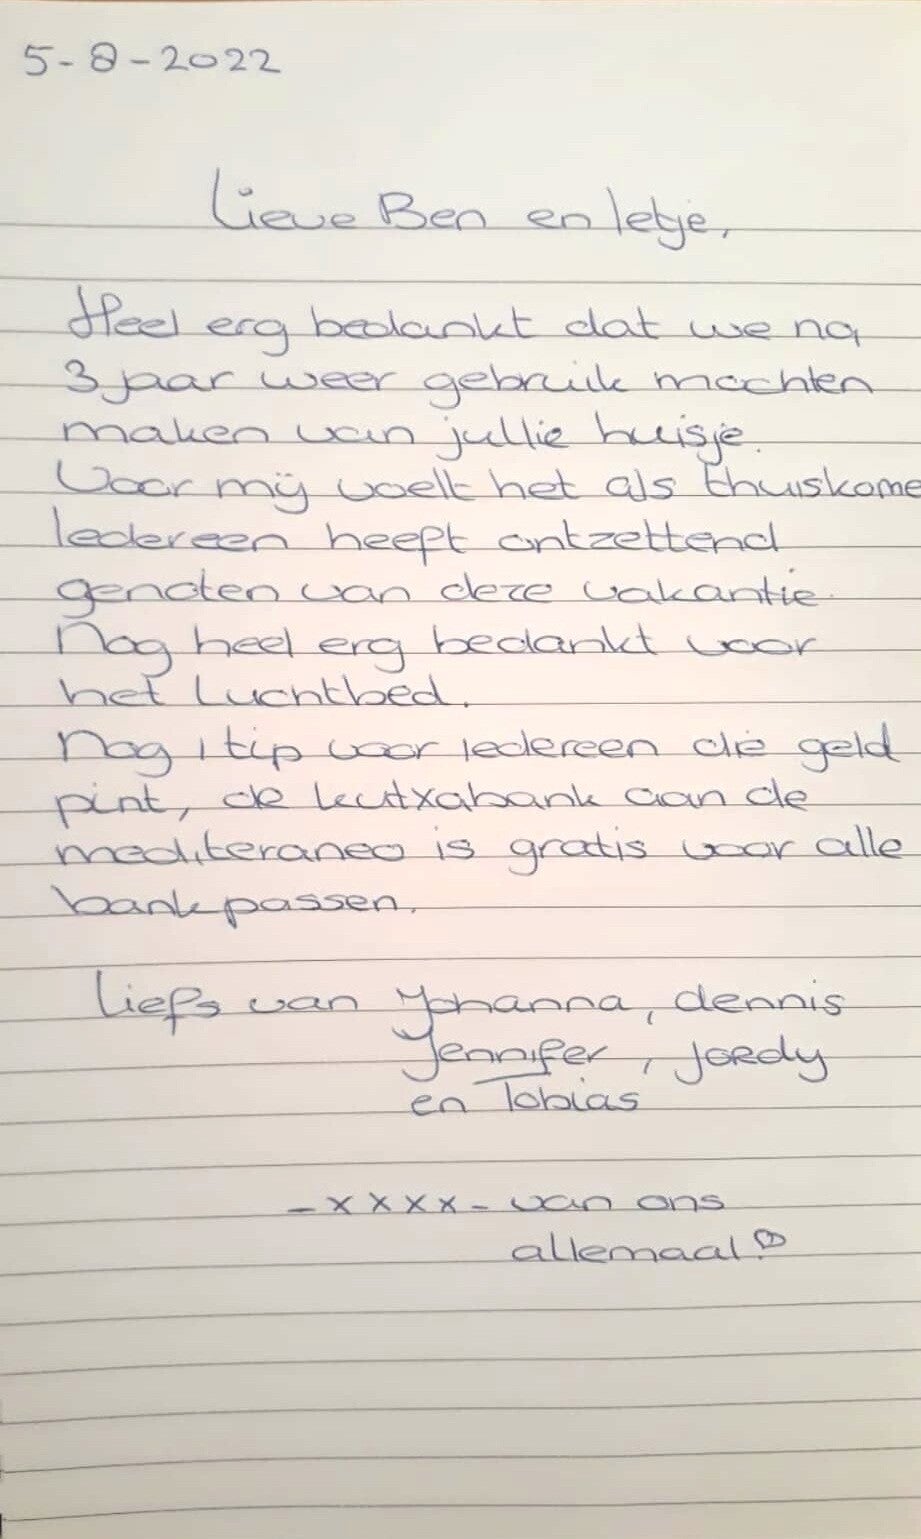 5-8-2022
Lieve Ben en Ietje,
Heel erg bedankt dat we na
3 jaar weer gebruik mochten
maken van jullie huisje.
Voor mij voelt het als thuiskome
Iedereen heeft ontzettend
genoten van deze vakantie.
Nog heel erg bedankt voor
het Luchtbed.
Nog 1 tip voor iedereen die geld
pint, de kutxabank aan de
mediteraneo is gratis voor alle
bankpassen.
Liefs van Johanna, dennis
Jennifer, Jordy
en Tobias
-xxxx- van ons
allemaal